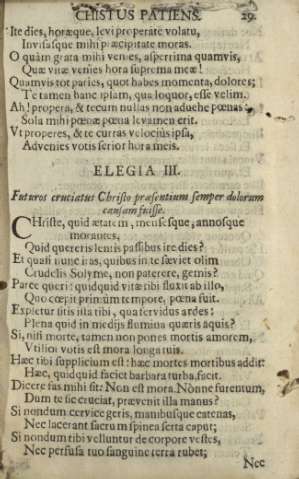 CHISTUS PATIENS. 29.
Ite dies, horæque, levi properate volatu,
Invisasque mihi præcipitate moras.
O quàm grata mihi venies, asperrima quamvis,
Quæ vitæ venies hora suprema meæ!
Quamvis tot paries, quot habes momenta, dolores;
Te tamen hanc ipsam, qua loquor, esse velim.
Ah! propera, & tecum nullas non advehe pœnas:
Sola mihi pœnæ pœna levamen erit.
Vt properes, & te curras velociùs ipsa,
Advenies votis serior hora meis.
ELEGIA III.
Futuros cruciatus Christo præsentium semper dolorum
causam fuisse.
CHriste, quid ætatem, mensesque, annosque
morantes,
Quid quereris lentis passibus ire dies?
Et quasi nunc iras, quibus in te sæviet olim
Crudelis Solyme, non paterere, gemis?
Parce queri: quidquid vitæ tibi fluxit ab illo,
Quo cœpit primùm tempore, pœna fuit.
Expletur sitis illa tibi, qua fervidus ardes:
Plena quid in medijs flumina quæris aquis?
Si, nisi morte, tamen non pones mortis amorem,
Vtilior votis est mora longa tuis.
Hæc tibi supplicium est: hæc mortes mortibus addit:
Hæc, quidquid faciet barbara turba, facit.
Dicere fas mihi sit: Non est mora. Nònne furentum,
Dum te sic cruciat, prævenit illa manus?
Si nondum cervice geris, manibusque catenas,
Nec lacerant sacrum spinea serta caput;
Si nondum tibi velluntur de corpore vestes,
Nec perfusa tuo sanguine terra rubet;
Nec